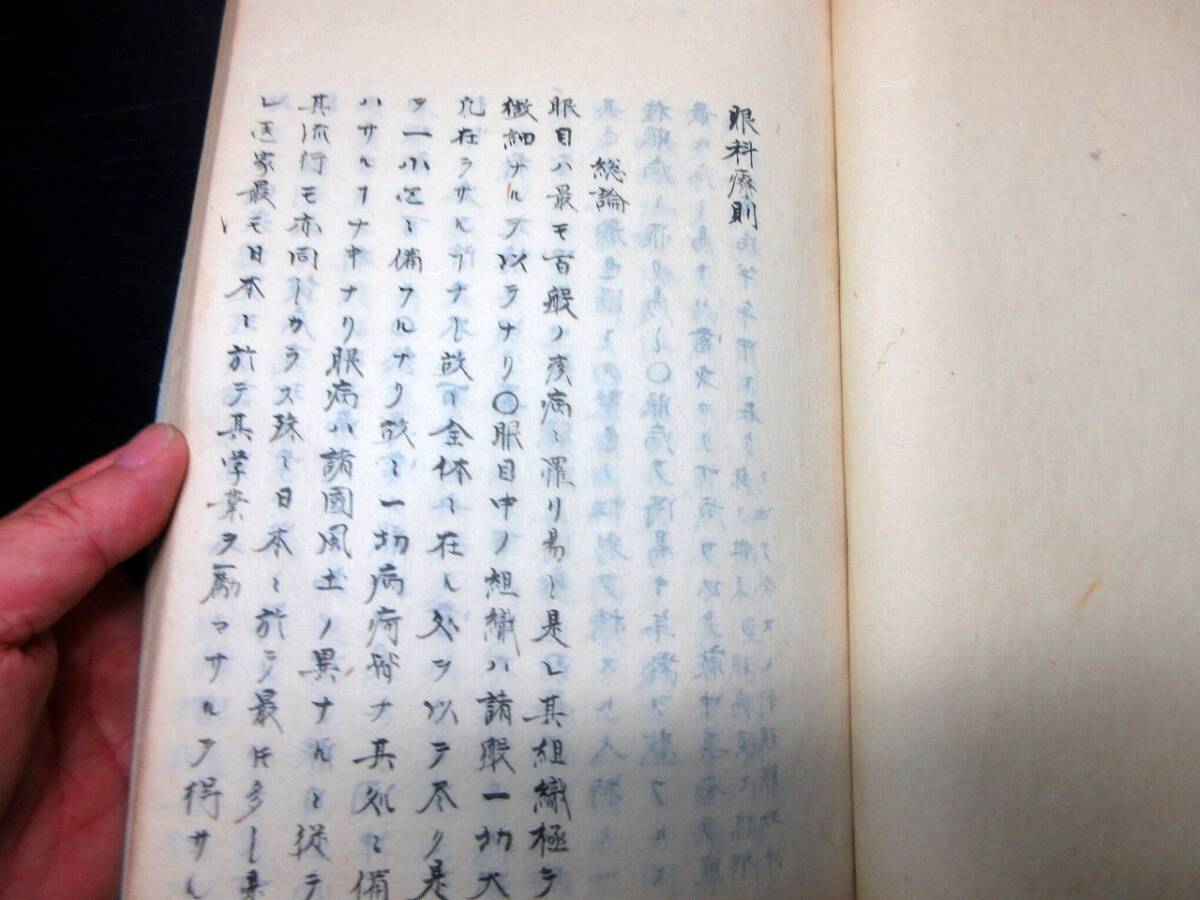 眼科療則
総論
眼目ハ最モ百般ノ疾病ニ罹リ易シ是レ其組織極テ
微細ナルヲ以テナリ〇眼目中ノ組織ハ諸般一切大
在ラサルヿナシ故ニ全体ニ在ル処ヲ以テ尽ク是
ヲ一小ニ備フルナリ故ニ一切病痾其処ニ備
ハサルヿナキナリ眼病ハ諸國風土ノ異ナルニ従テ
其流行モ亦同シカラス殊ニ日本ニ於テ最モ多シ
レ医家最モ日本ニ於テ其学業ヲ励マサルヲ得サル